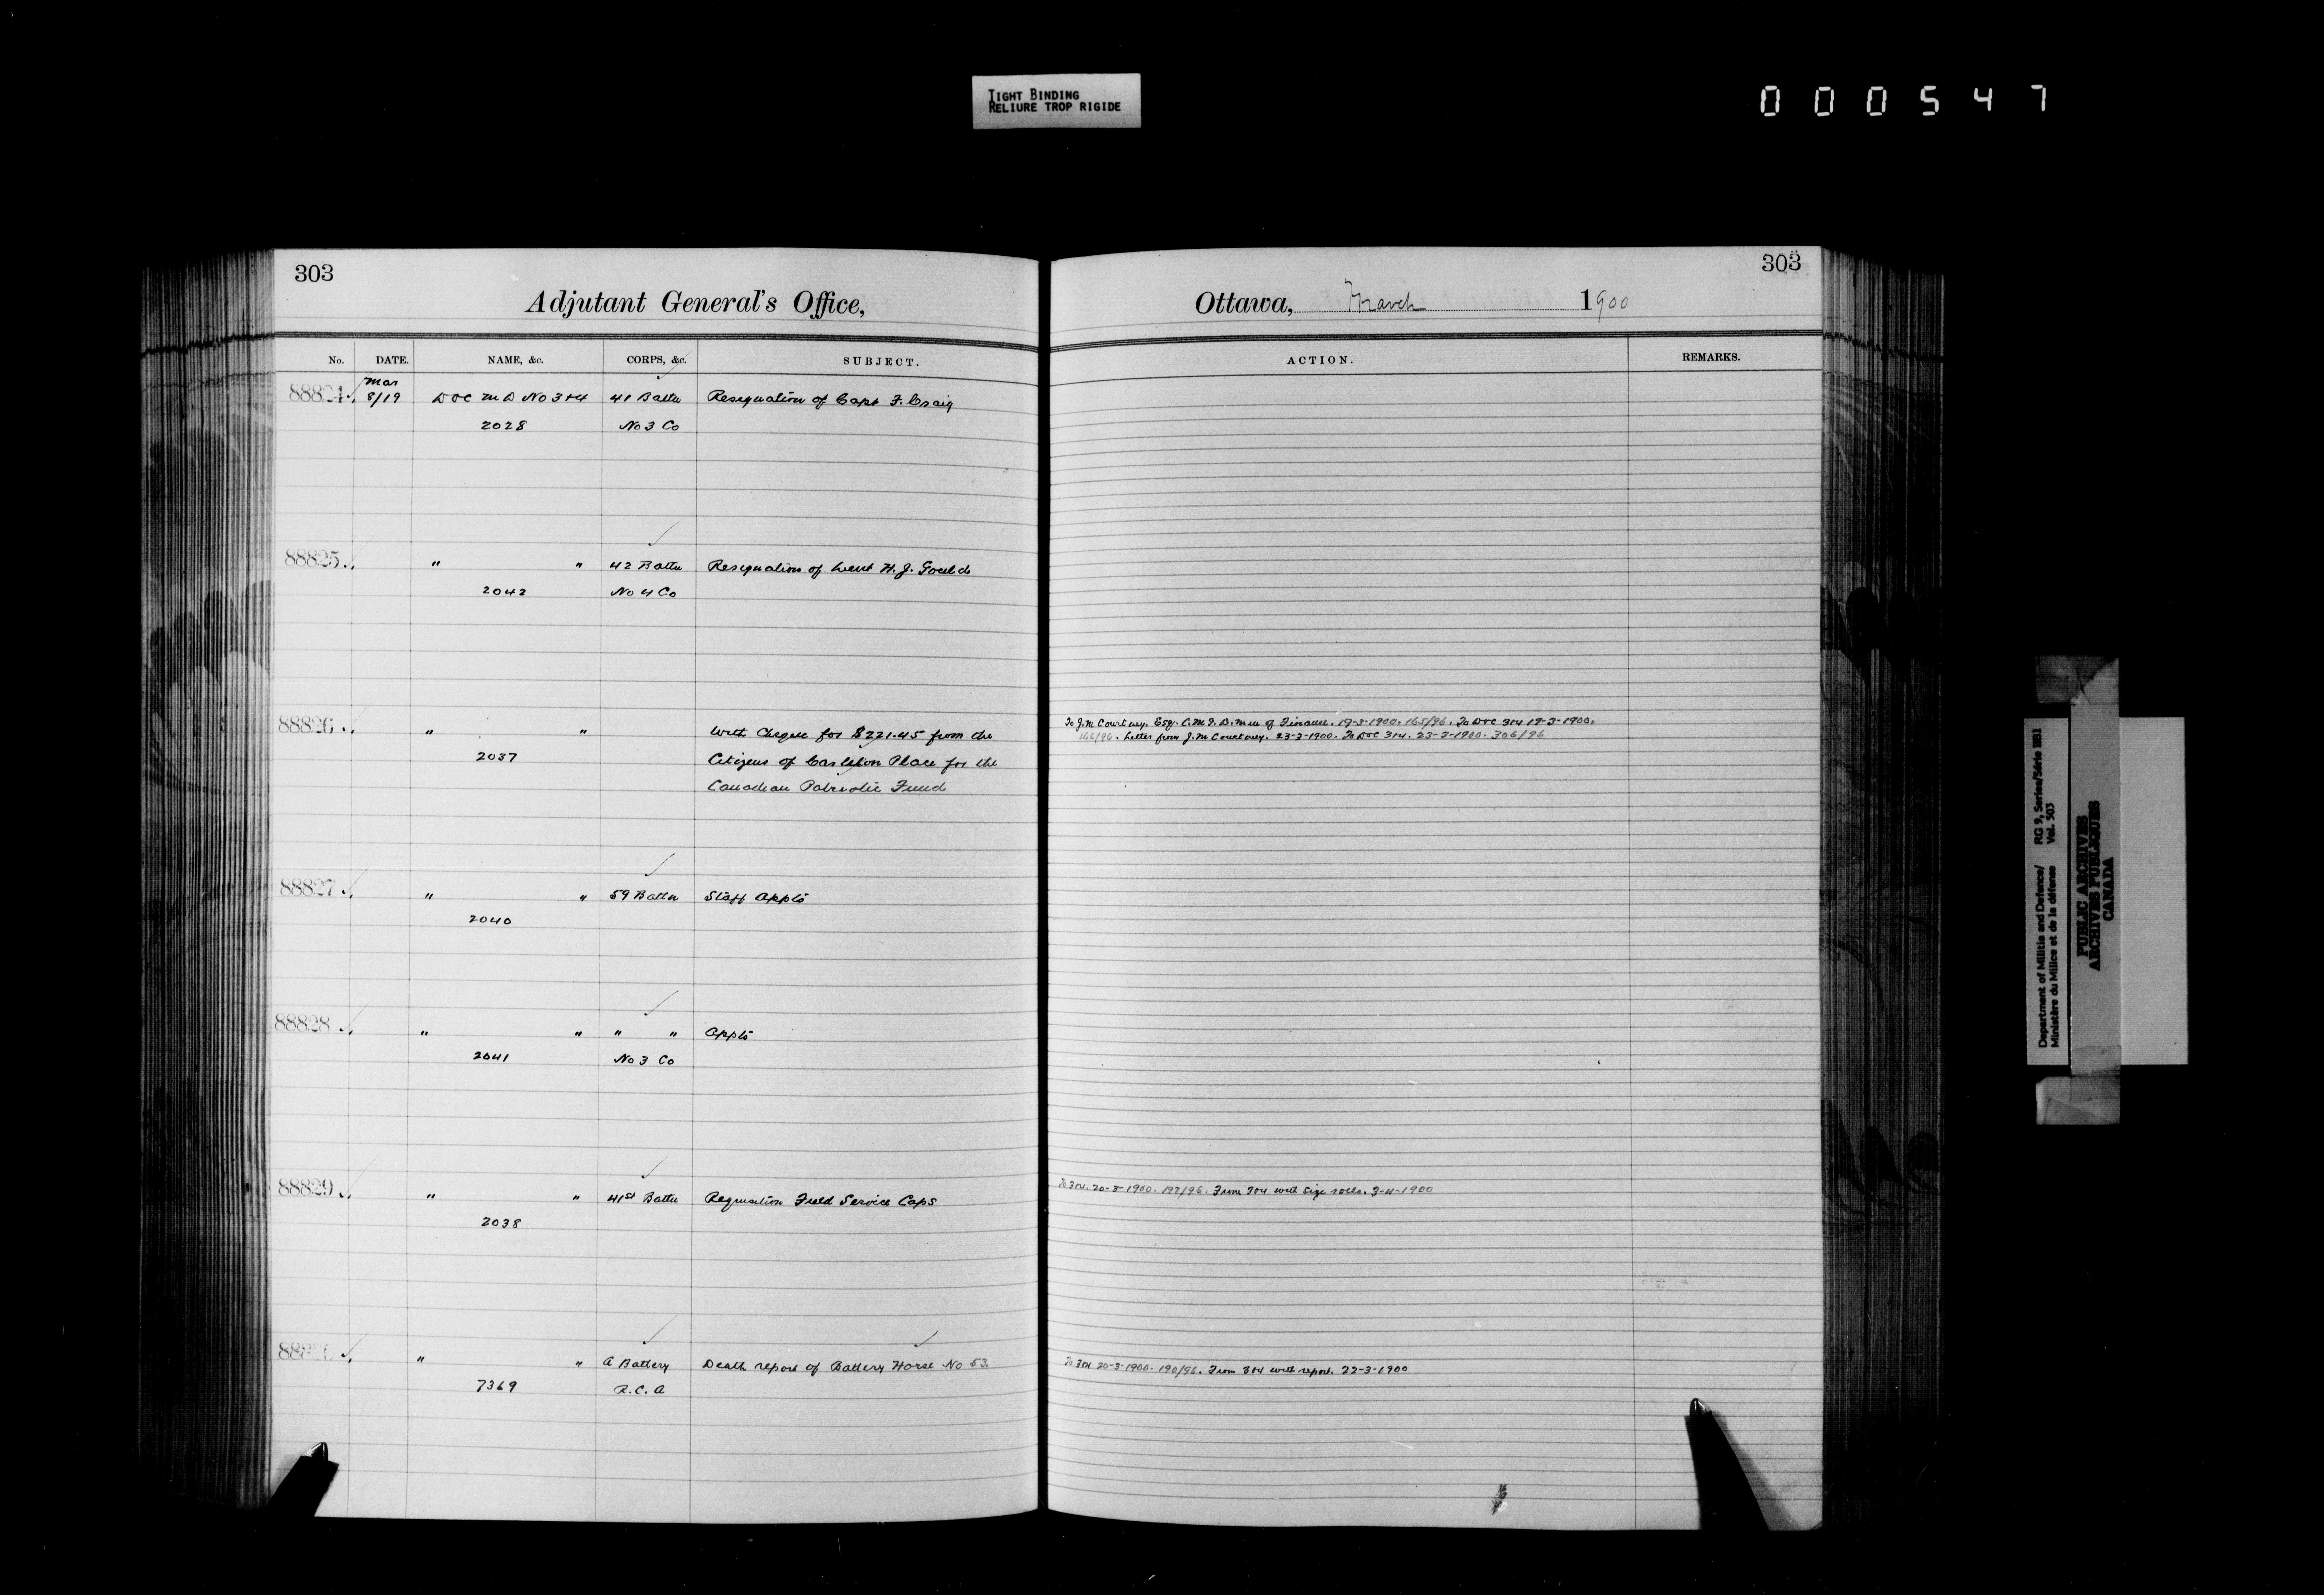 TIGHT BINDING
RELIURE TROP RIGIDE
000547
303
Adjutant General's Office,
No. DATE. NAME, &c. CORPS, &c. SUBJECT.
Mar
88824 8/19 DOC M D No 3&4 41 Battn Resignation of Capt F. Craig
2028 No 3 Co
88825 " " 42 Battn Resignation of Lieut H. J. Gould
2042 No 4 Co
88826 " " With Cheque for $221.45 from the
2037 Citizens of Carleton Place for the
Canadian Patriotic Fund
88827 " " 59 Battn Staff Appts
2040
88828 " " " " Appts
2041 No 3 Co
88829 " " 41st Battn Requisition Field Service Caps
2038
" " A Battery Death report of Battery Horse No 53.
7369 R.C.A
303
Ottawa, March 1900
ACTION. REMARKS.
To J.M Courtney. Esq. C.M.G. D. Min of Finance. 19-3-1900. 165/96. To DOC 3&4 19-3-1900.
166/96. Letter from J.M Courtney. 23-3-1900. To DOC 3&4. 23-3-1900. 306/96
To 3&4. 20-3-1900. 192/96. From 3&4 with Size rolls. 3-4-1900
To 3&4 20-3-1900. 190/96. From 3&4 with report. 22-3-1900
Department of Militia and Defence/ RG 9, Series/Série IIB1
Ministère du Milice et de la défense Vol. 503
PUBLIC ARCHIVES
ARCHIVES PUBLIQUES
CANADA